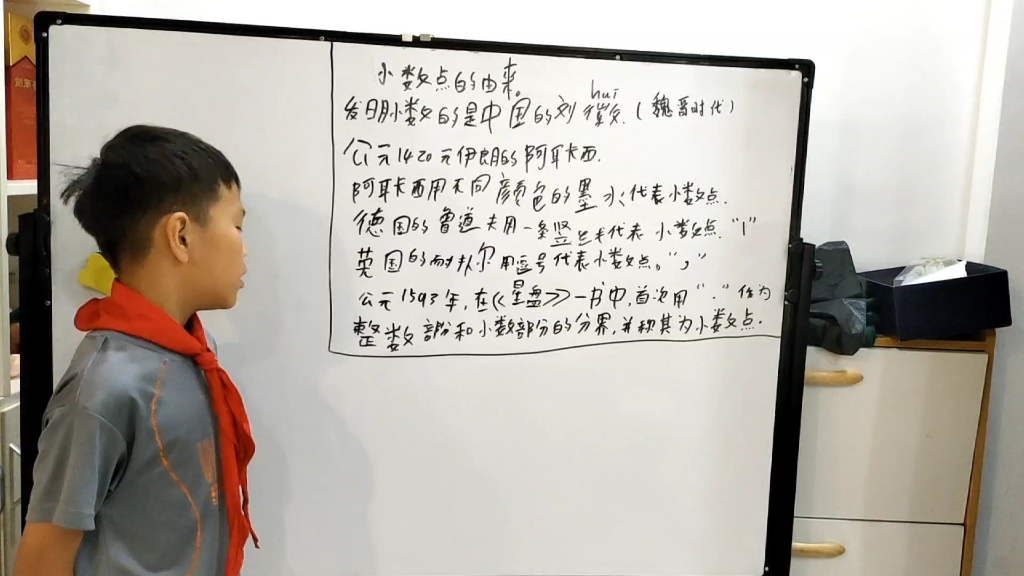 小数点的由来。
huī
发明小数的是中国的刘徽.(魏晋时代)
公元1420元伊朗的阿耳卡西.
阿耳卡西用不同颜色的墨水代表小数点.
德国的鲁道夫用一条竖线代表小数点."|"
英国的耐扑尔用逗号代表小数点。","
公元1593年,在《星盘》一书中,首次用"."作为
整数部份和小数部份的分界,并称其为小数点.